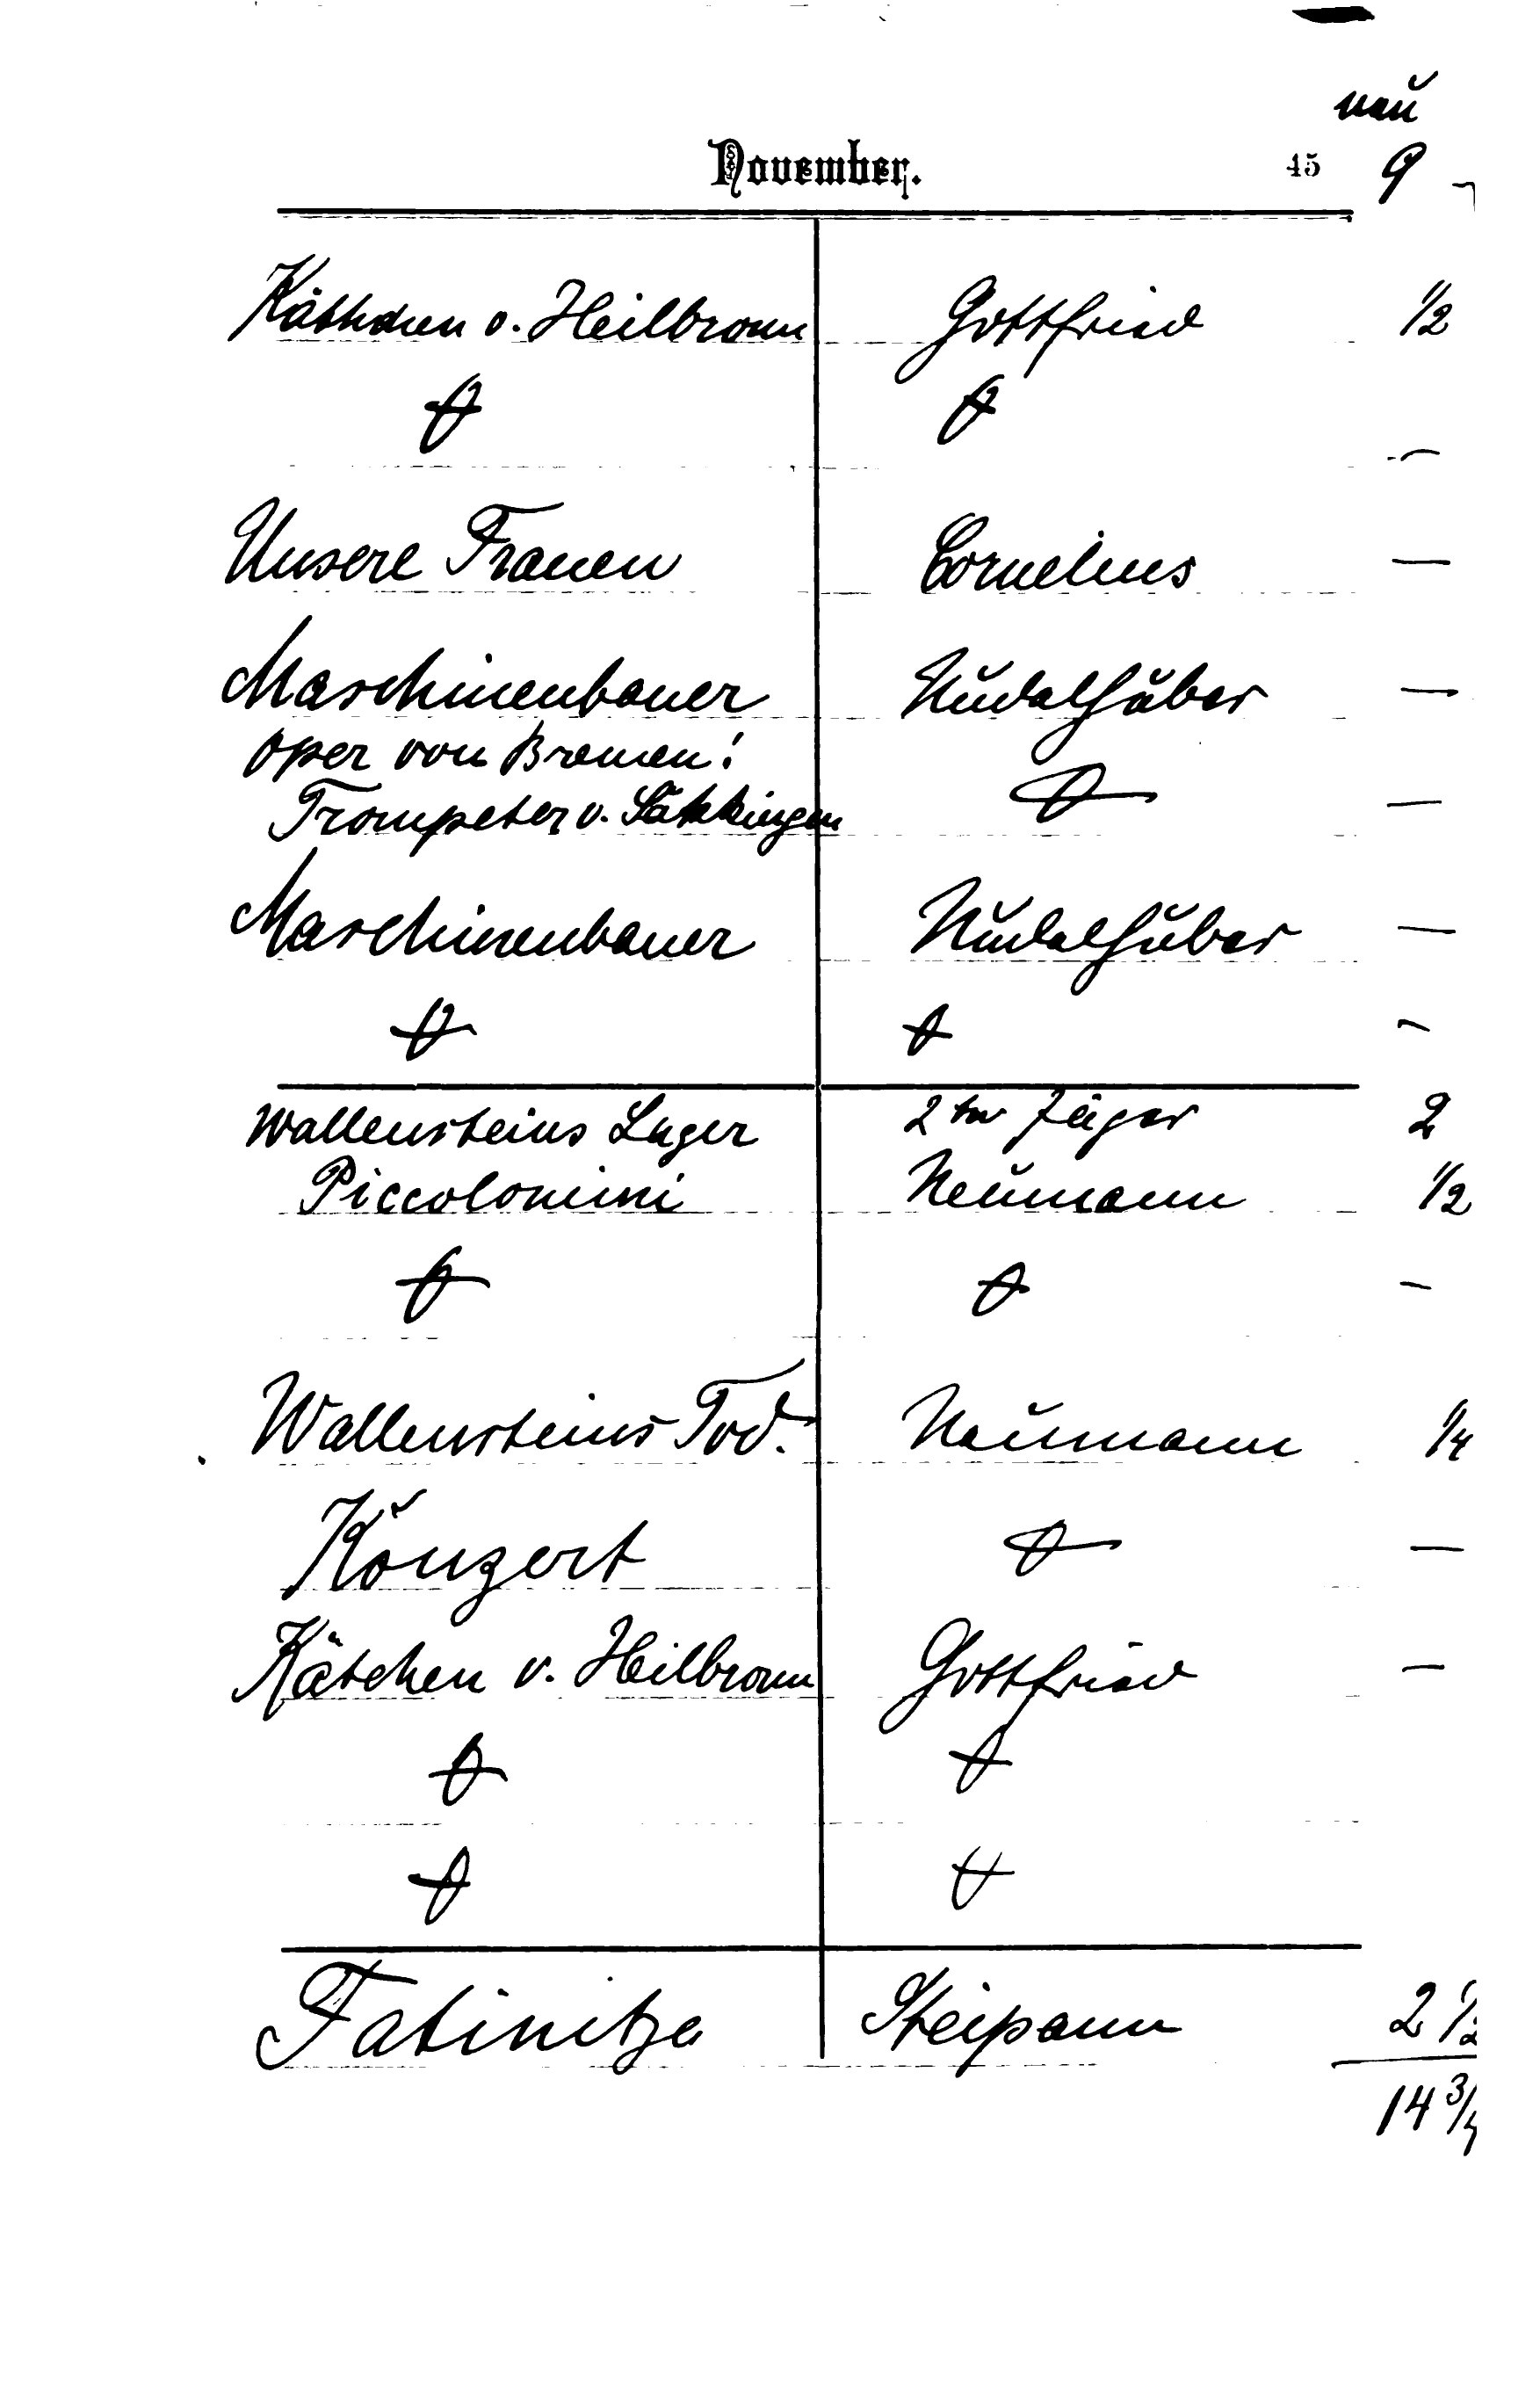 neu
November. 45 9
Käthchen v. Heilbronn Gottfried 1/2
Unsere Frauen Cornelius —
Maschinenbauer Nudelhuber —
Oper von Bremen!
Trompeter v. Säkkingen —
Maschinenbauer Nudelhuber —
Wallensteins Lager 2ter Jäger 2
Piccolomini Neumann 1/2
Wallensteins Tod. Neumann 1/4
Konzert —
Kätchen v. Heilbronn Gottfried —
Fatinitza Steipann 2 1/2
14 3/4